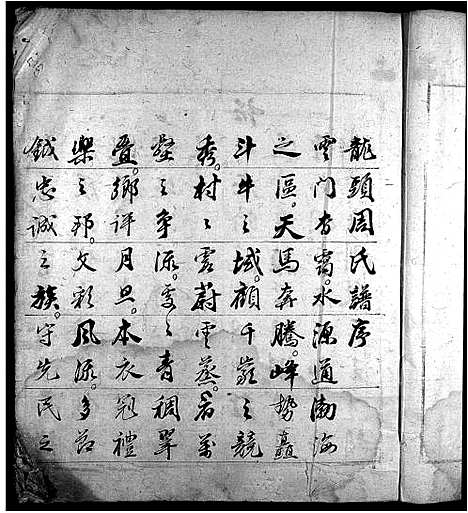 龍頭周氏譜序
雲門杳靄。水源通渤海
之區。天馬奔騰。峰勢矗
斗牛之域。顧千巖之競
秀。村〻霞蔚雲蒸。看萬
壑之爭流。處〻青稠翠
疊。鄉評月旦。本衣冠禮
樂之邦。文彩風流。多節
鉞忠誠之族。守先民之